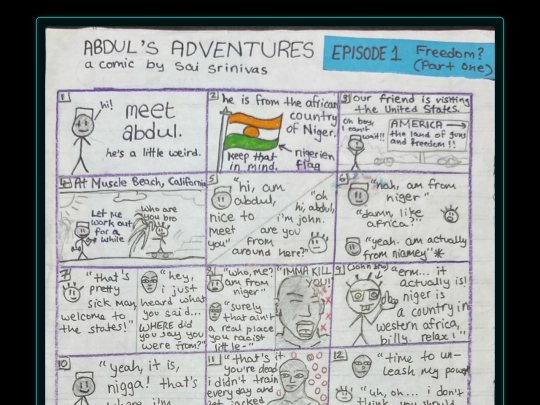 ABDUL'S ADVENTURES
a comic by Sai Srinivas
EPISODE 1
Freedom?
(Part One)
1
hi!
meet
abdul.
he's a little weird.
2
he is from the african
country
of Niger.
keep that
in mind.
nigerien
flag
3
our friend is visiting
the United States.
Oh boy,
I can't
wait!!
AMERICA
the land of guns
and freedom!!
4
At Muscle Beach, California
Let me
work out
for a
while
Who are
you bro
5
"hi, am
abdul,
nice to
meet
you"
"oh
hi, abdul,
i'm john.
are you
from
around here?"
6
"nah, am from
niger"
"damn, like
africa?"
"yeah. am actually
from niamey"*
7
"that's
pretty
sick man,
welcome to
the states!"
"hey,
i just
heard what
you said...
WHERE did
you say you
were from?"
8
"who, me?
am from
niger"
"surely
that ain't
a real place
you racist
little-"
"IMMA KILL
YOU!"
9
(John btw)
"erm... it
actually is!
niger is
a country in
western africa,
billy. relax!"
10
"yeah, it is,
nigga! that's
11
"that's it
you're dead
i didn't train
every day and
get jacked
12
"time to un-
leash my power"
"uh, oh... i don't
think you should